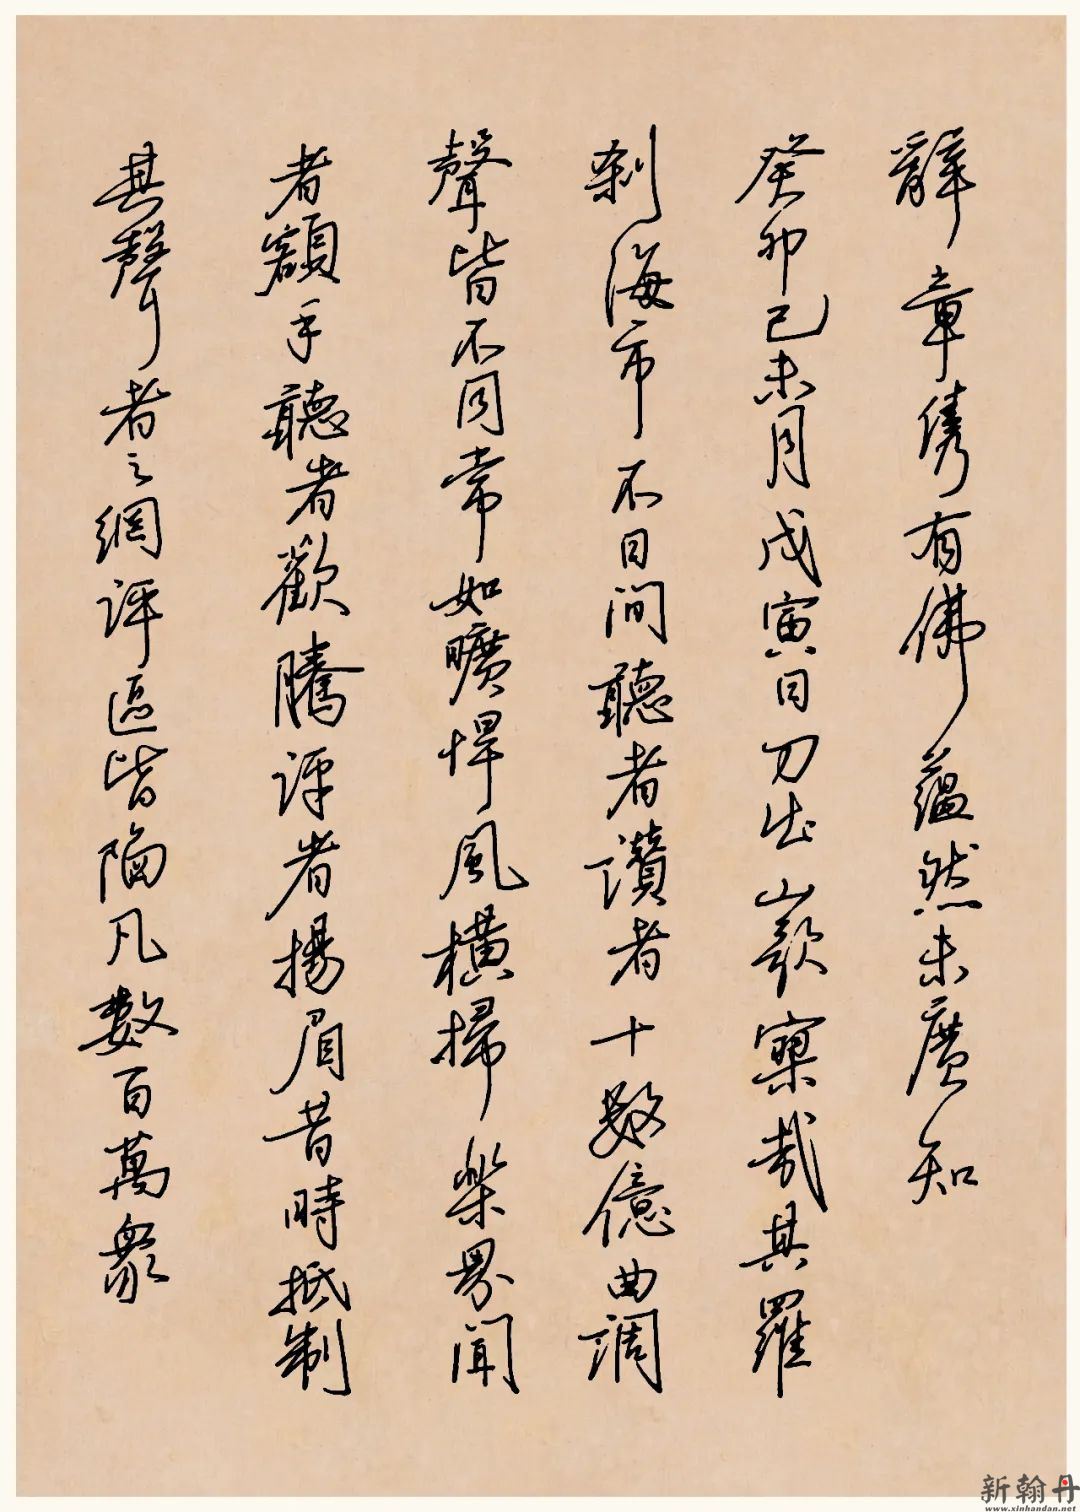 辭章儁有佛蘊然未廣知
癸卯己未月戊寅日刀出山歌寥哉其羅
剎海市不日間聽者讚者十數億曲調
聲皆不同常如曠悍風橫掃樂界聞
者額手聽者歡騰評者揚眉昔時抵制
其聲者之網評區皆陷凡數百萬眾
新翰丹
www.xinhandan.net